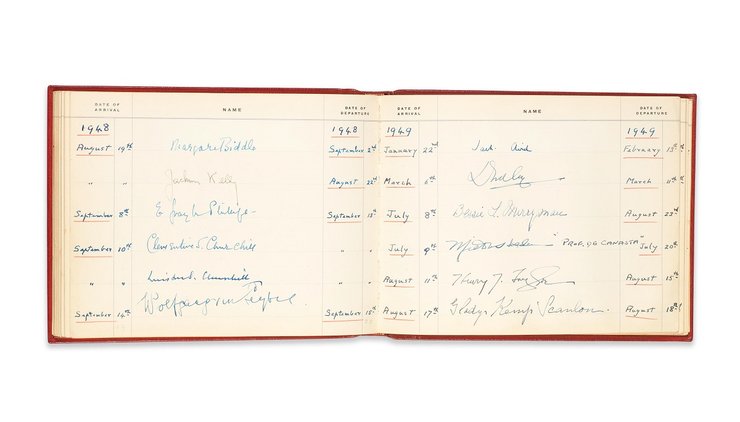 DATE OF ARRIVAL NAME DATE OF DEPARTURE
1948 1948
August 19th Margaret Biddle September 2nd
" " Kelly August 22nd
September 8th September 13th
September 10th Clementine S. Churchill " "
" " Winston S. Churchill
September 14th Wolfgang September 15th
DATE OF ARRIVAL NAME DATE OF DEPARTURE
1949 1949
January 22nd February 13th
March 6th Dudley March 11th
July 8th Bessie L. Merryman August 23rd
July 9th "PROF. DE CANASTA" July 20th
August 11th Henry J. August 15th
August 17th Gladys Kemp Scanlon. August 18th